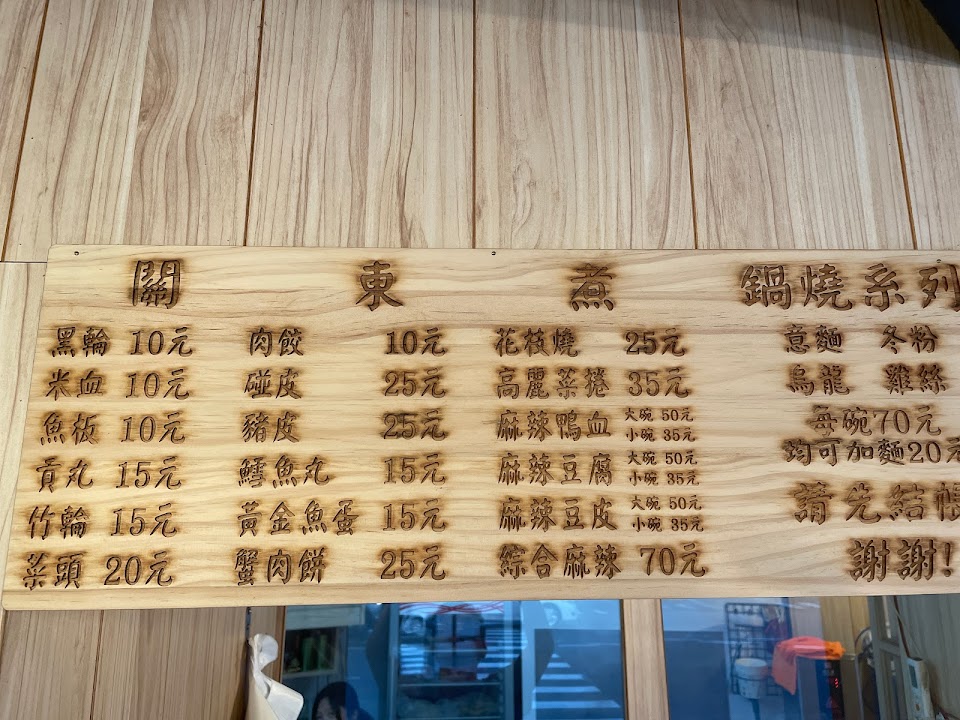 關東煮 鍋燒系列
黑輪 10元 肉餃 10元 花枝燒 25元 意麵 冬粉
米血 10元 碰皮 25元 高麗菜捲 35元 烏龍 雞絲
魚板 10元 豬皮 25元 麻辣鴨血 大碗 50元 小碗 35元 每碗70元
均可加麵20元
貢丸 15元 鱈魚丸 15元 麻辣豆腐 大碗 50元 小碗 35元
竹輪 15元 黃金魚蛋 15元 麻辣豆皮 大碗 50元 小碗 35元 請先結帳
菜頭 20元 蟹肉餅 25元 綜合麻辣 70元 謝謝!